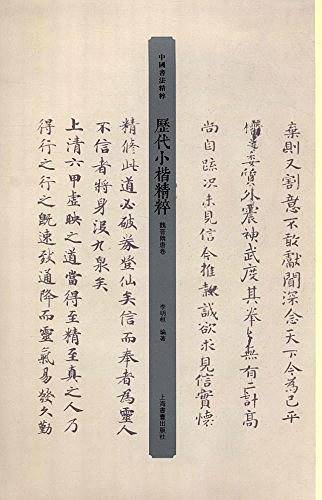 棄則又割意不敢獻聞深念天下今為已平
權之委質外震神武度其拳拳無有二計高
尚自疏況未見信今推款誠欲求見信實懷
中國書法精粹
歷代小楷精粹
魏晉隋唐卷
李明桓 編著
上海書畫出版社
精修此道必破券登仙矣信而奉者為靈人
不信者將身沒九泉矣
上清六甲虛映之道當得至精至真之人乃
得行之行之既速致通降而靈氣易發久勤